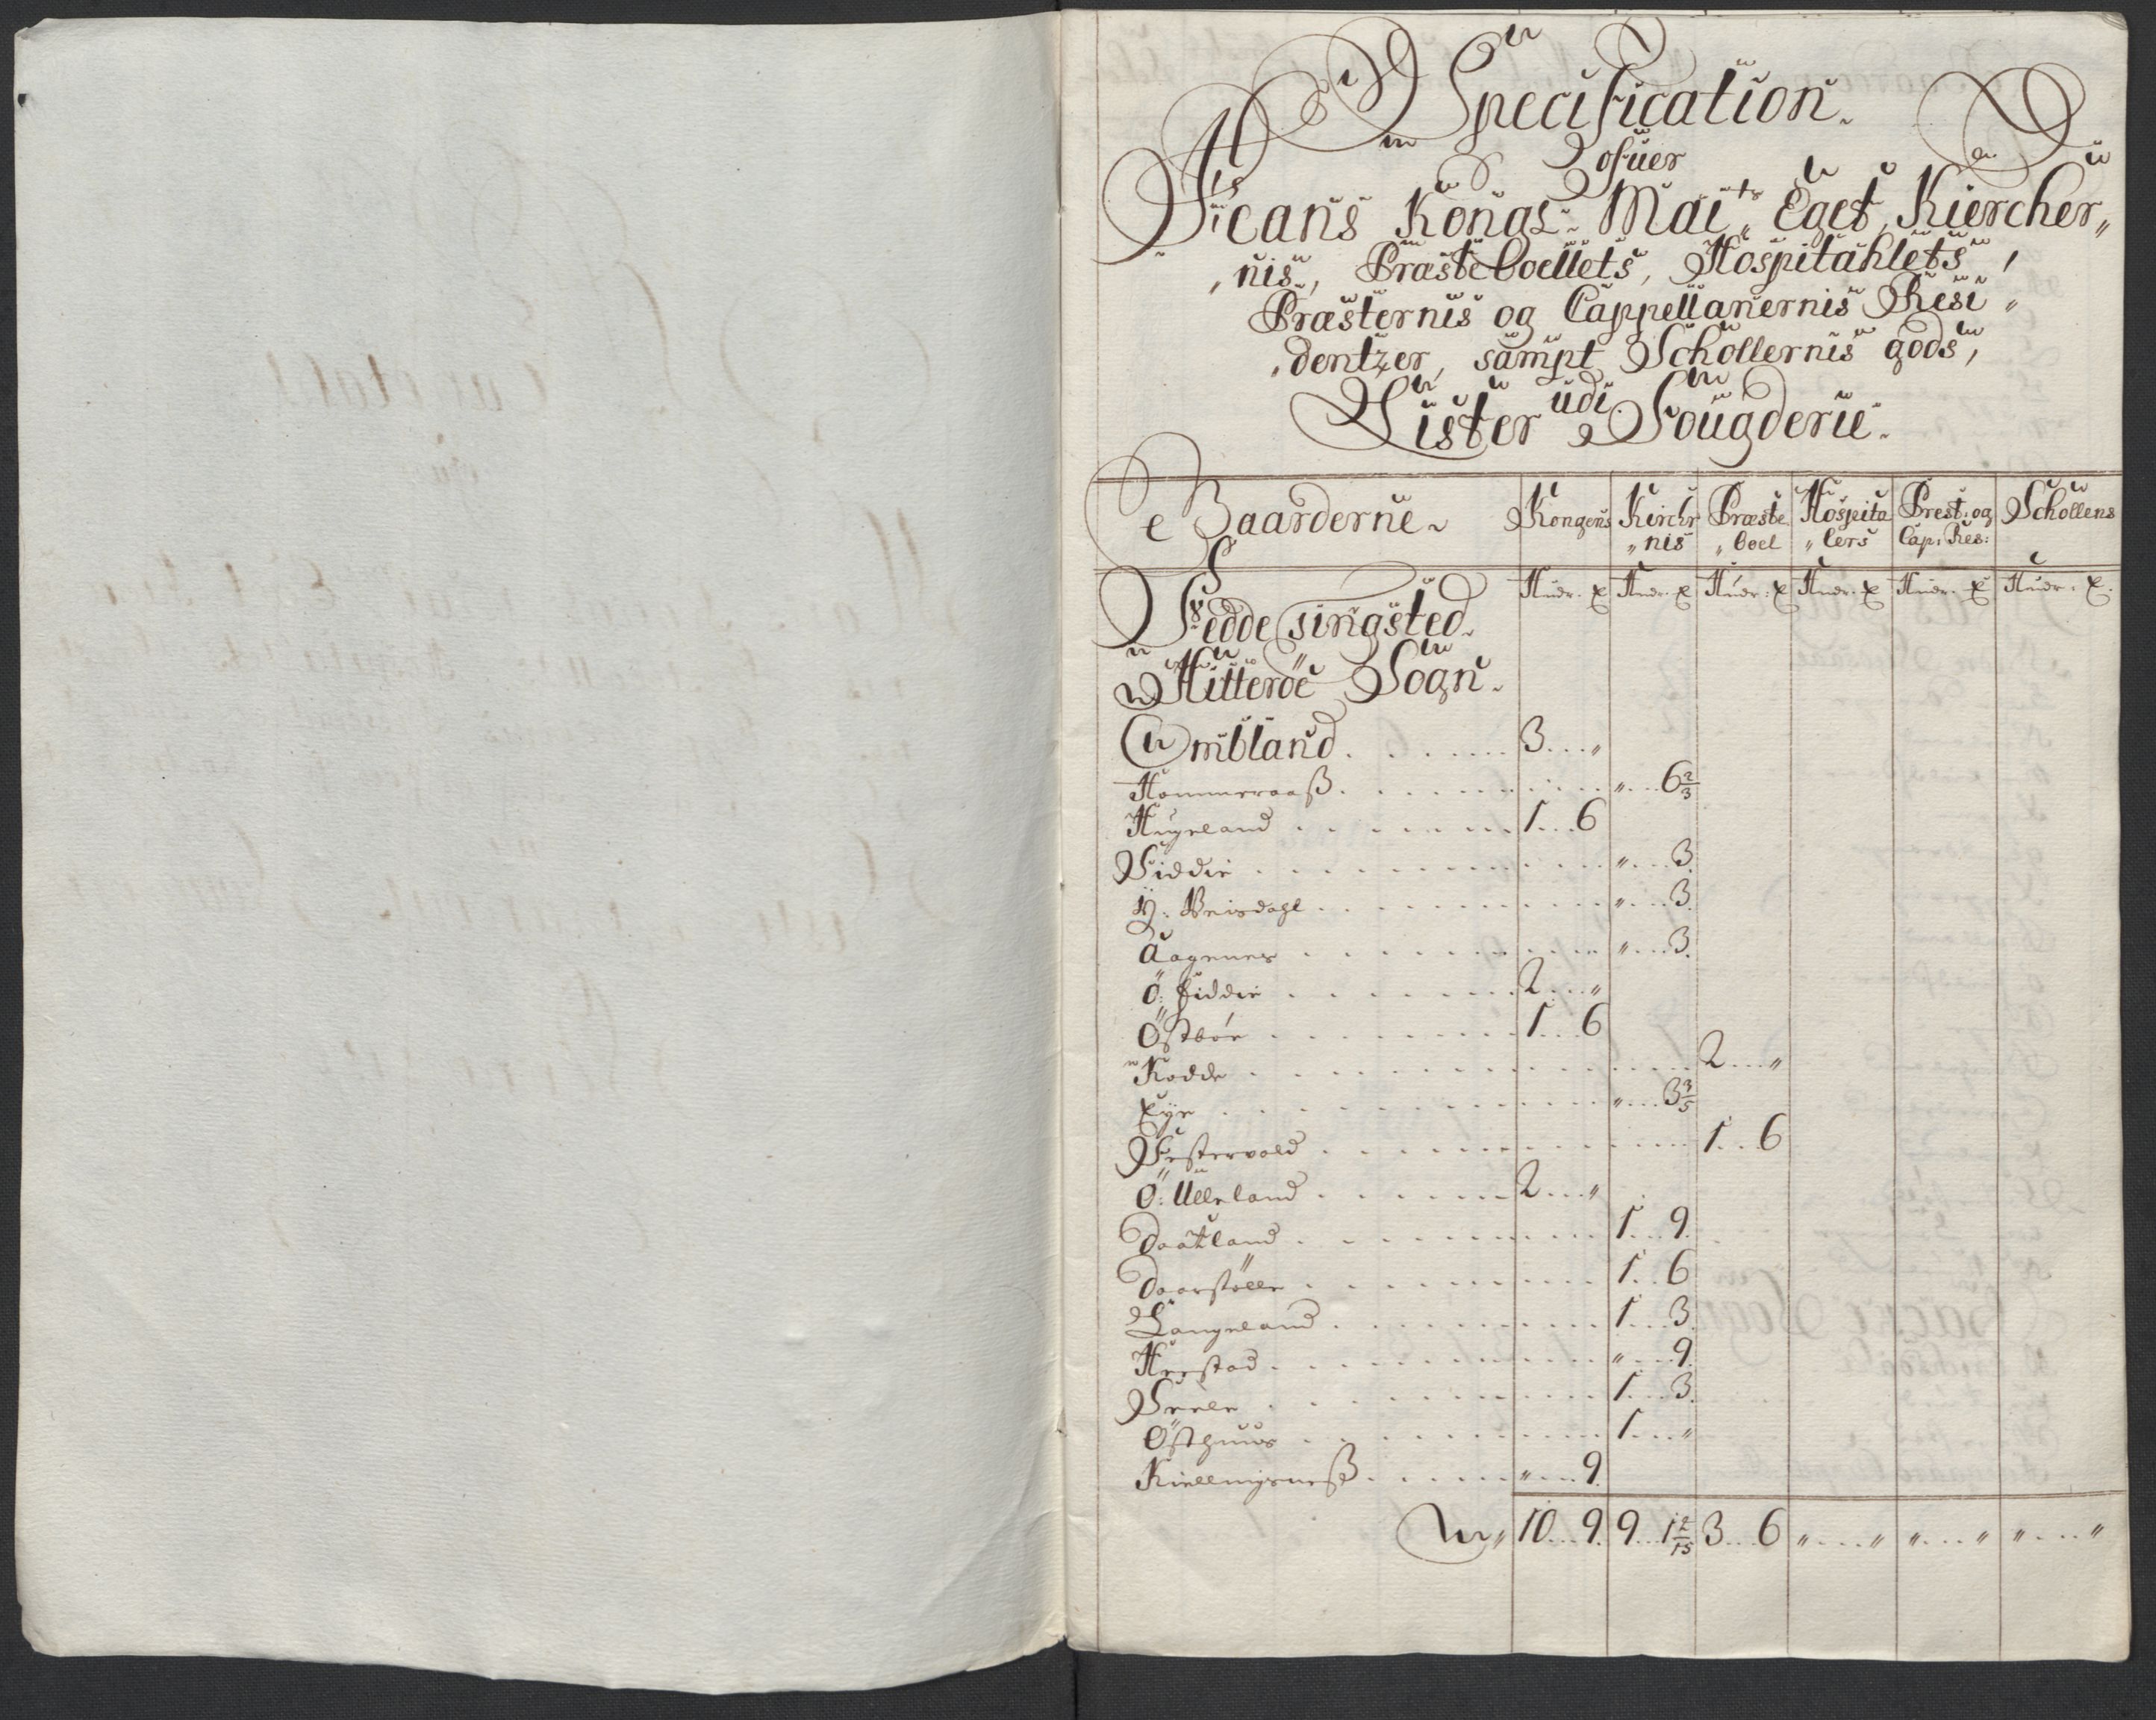 Specification
ofuer
Hans Kongl: Mai^ts Eget, Kiercher„
„nis, Præsteboellets, Hospitahlets,
Præsternis og Cappellanernis Resi„
„dentzer, sampt Schollernis gods,
udi
Lister Fougderie.
Gaarderne Kongens Kirchr„nis Præste„boel Hospita„lers Prest: og Cap: Res: Schollens
Hudr. Hudr. Hudr. Hudr. Hudr. Hudr.
Fedde Tingsted
Hitterøe Sogn
Ombland 3 „
Hommeraaß „ 6 2/3
Hugeland 1 6
Fiddie „ 3
Y: Breisdahl „ 3
Aagenes „ 3
Ö: Fiddie 2 „
Östbøe 1 6
Rødde 2 „
Eye „ 3 3/5
Vestervold 1 6
Ö: Ulleland 2 „
Daatland 1 9
Daarstølle 1 6
Langeland 1 3
Heestad „ 9
Östhuus 1 „
Kiellingneß „ 9
10 9 9 1 2/15 3 6 „ „ „ „ „ „